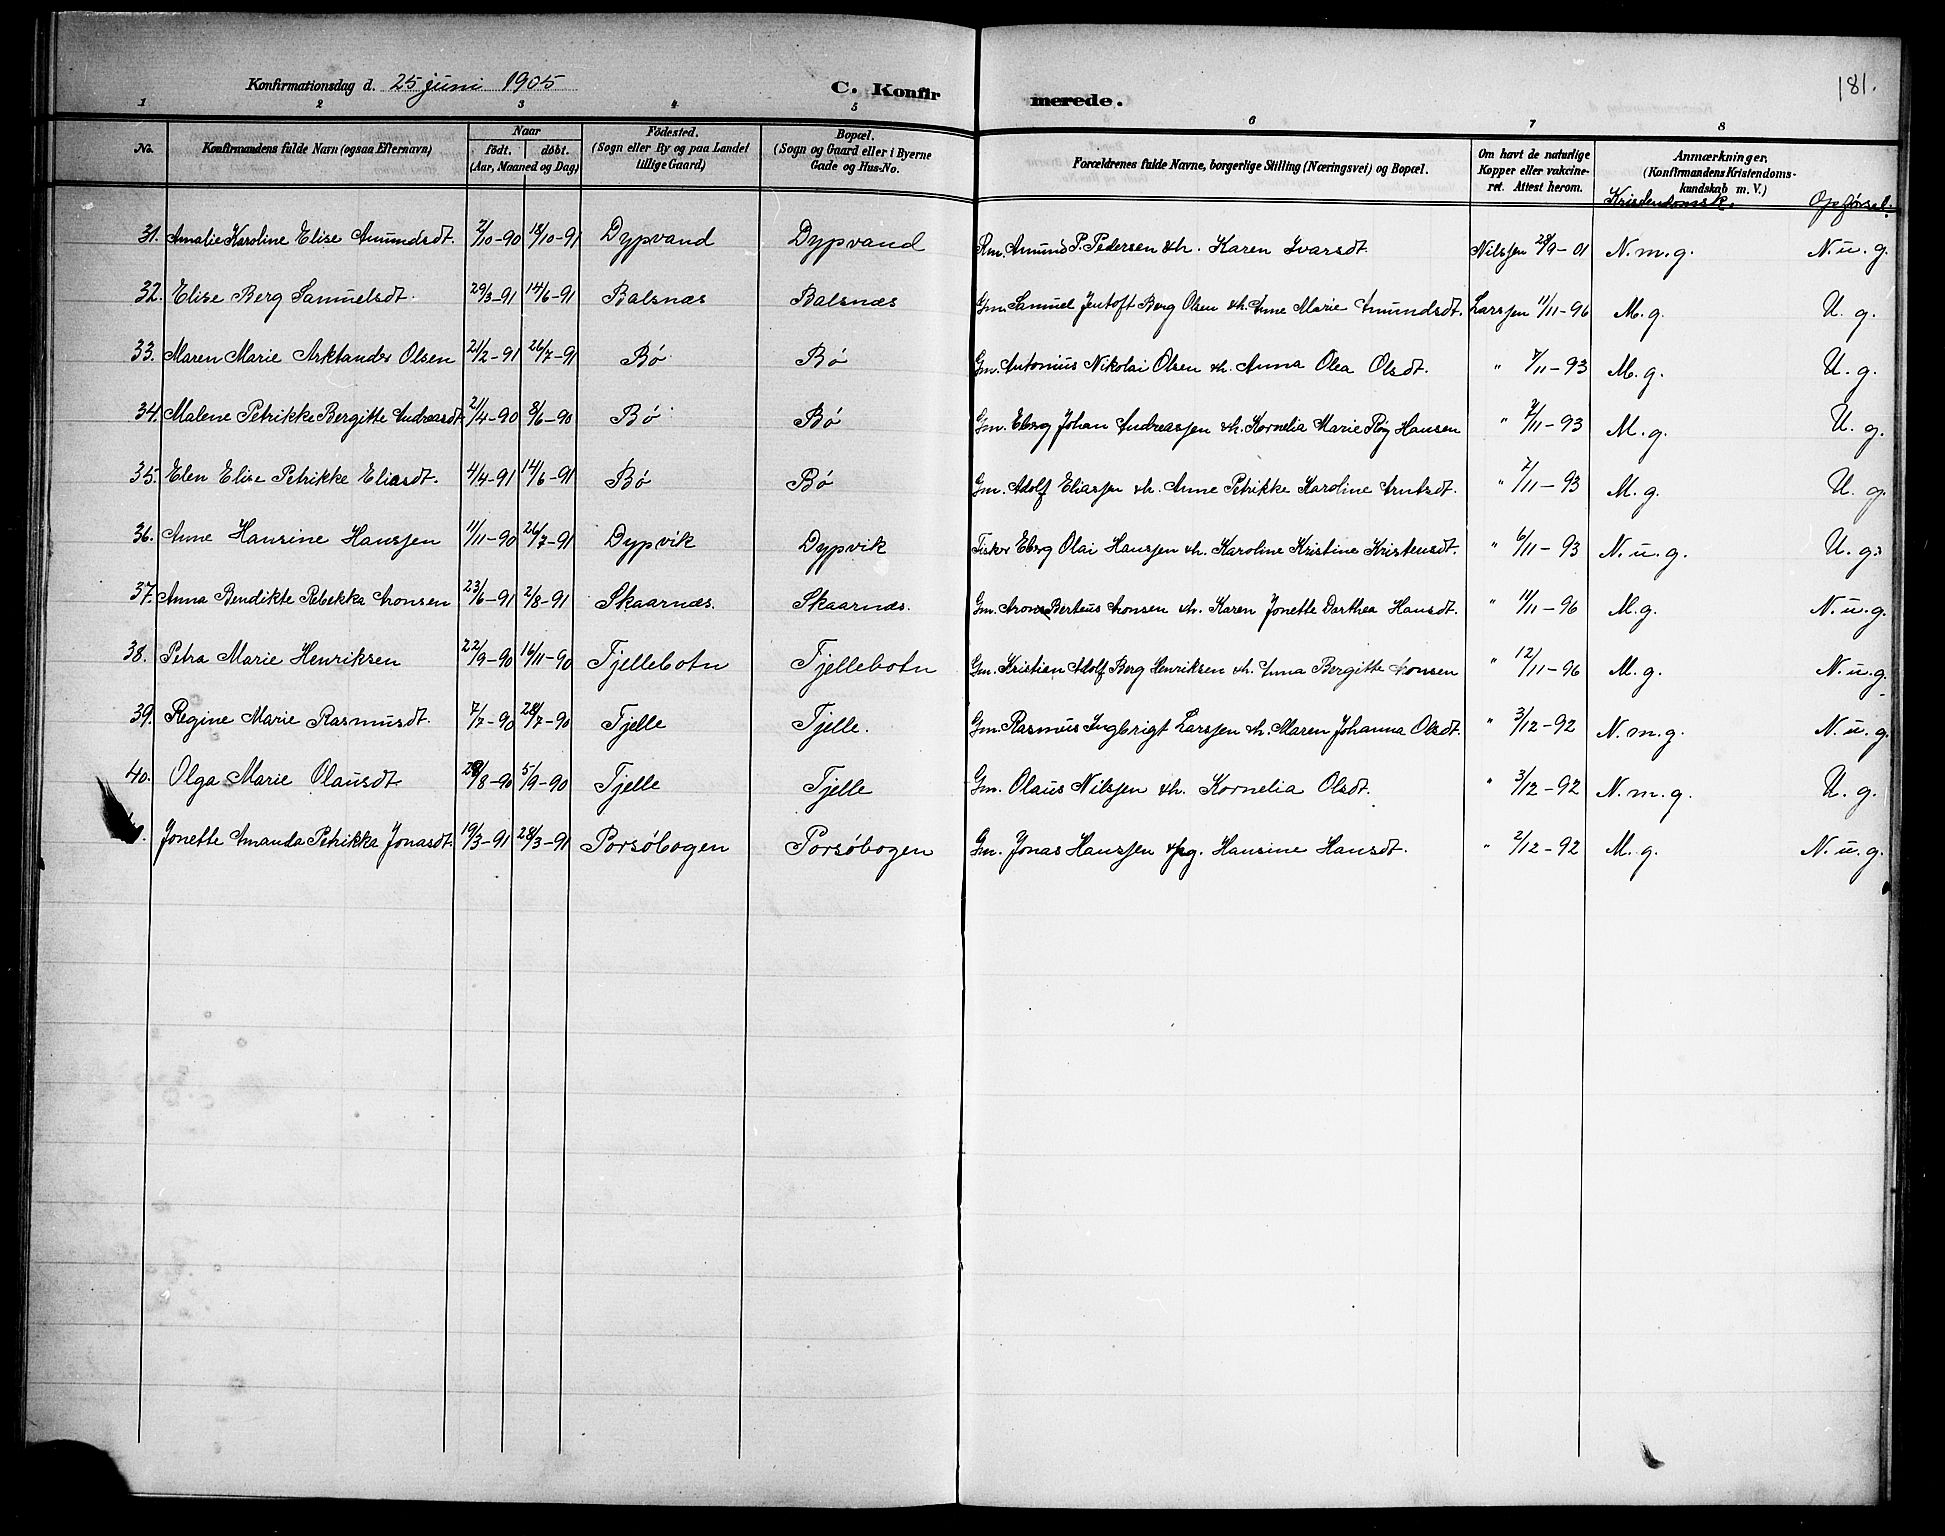 Konfirmationsdag d. 25 juni 1905 C. Konfirmerede. 181.
1 2 3 4 5 6 7 8
No. Konfirmandens fulde Navn (ogsaa Efternavn) Naar født. døbt. (Aar, Maaned og Dag) Fødested. (Sogn eller By og paa Landet tillige Gaard) Bopæl. (Sogn og Gaard eller i Byerne Gade og Hus-No. Forældrenes fulde Navne, borgerlige Stilling (Næringsvei) og Bopæl. Om havt de naturlige Kopper eller vakcineret. Attest herom. Anmærkninger. (Konfirmandens Kristendomskundskab m. V.)
Kristendomsk. Opførsel.
31. Amalie Karoline Elise Amundsdt. 7/10-90 18/10-91 Dypvand Dypvand Rm. Amund P. Pedersen & h. Karen Ivarsdt. Nilssen 28/9-01 N. m. g. N. u. g.
32. Elise Berg Samuelsdt. 29/3-91 14/6-91 Balsnæs Balsnæs Gm. Samuel Jentoft Berg Olsen & h. Anne Marie Amundsdt. Larssen 11/11-96 M. g. U. g.
33. Maren Marie Arktander Olsen 21/2-91 26/7-91 Bø Bø Gm. Antonius Nikolai Olsen & h. Anna Olea Olsdt. " 7/11-93 M. g. U. g.
34. Malene Petrikke Bergitte Andreasdt. 21/4-90 8/6-90 Bø Bø Gm. Eberg Johan Andreassen & h. Kornelia Marie Røy Hansen " 7/11-93 M. g. U. g.
35. Elen Elise Petrikke Eliasdt. 4/4-91 14/6-91 Bø Bø Gm. Adolf Eliassen & h. Anne Petrikke Karoline Arntsdt. " 7/11-93 M. g. U. g.
36. Anne Hansine Hanssen 11/11-90 26/7-91 Dypvik Dypvik Fisker Eberg Olai Hanssen & h. Karoline Kristine Kristensdt. " 6/11-93 N. u. g. U. g.
37. Anna Bendikte Rebekka Aronsen 23/6-91 2/8-91 Skaarnæs. Skaarnæs. Gm. Aron Berteus Aronsen & h. Karen Jonette Dorthea Hansdt. " 11/11-96 M. g. N. u. g.
38. Petra Marie Henriksen 22/9-90 16/11-90 Tjellebotn Tjellebotn Gm. Kristian Adolf Berg Henriksen & h. Anna Bergitte Aronsen " 12/11-96 M. g. N. u. g.
39. Regine Marie Rasmusdt. 7/7-90 28/7-90 Tjelle Tjelle. Gm. Rasmus Ingbrigt Larssen & h. Maren Johanna Olsdt. " 3/12-92 N. m. g. N. u. g.
40. Olga Marie Olausdt. /8-90 5/9-90 Tjelle Tjelle Gm. Olaus Nilssen & h. Kornelia Olsdt. " 3/12-92 N. m. g. U. g.
Jonette Amanda Petrikka Jonasdt. 19/3-91 28/3-91 Porsøbogen Porsøbogen Gm. Jonas Hanssen & pg. Hansine Hansdt. " 2/12-92 M. g. N. u. g.